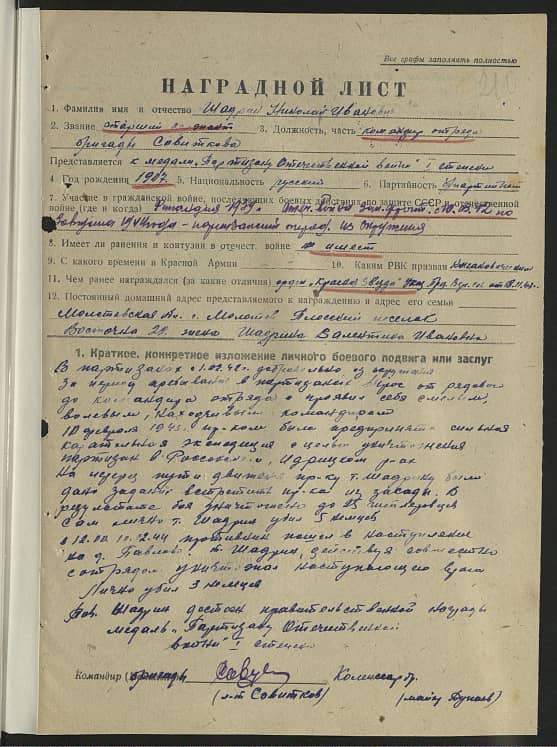 Все графы заполнять полностью
НАГРАДНОЙ ЛИСТ
1. Фамилия имя и отчество Шадрин Николай Иванович
2. Звание старший 3. Должность, часть командир отряда
бригады Совиткова
Представляется к медали „Партизану Отечественной войны" I степени
4. Год рождения 1907 5. Национальность русский 6. Партийность
7. Участие в гражданской войне, последующих боевых действиях по защите СССР и отечественной
войне (где и когда) Финляндия 1939г. 10.03.42 по
1944 года - партизанский отряд. из окружения
8. Имеет ли ранения и контузии в отечест. войне не имеет
9. С какого времени в Красной Армии 10. Каким РВК призван
11. Чем ранее награждался (за какие отличия) орден „Красная Звезда"
12. Постоянный домашний адрес представляемого к награждению и адрес его семьи
Молотовская обл. г. Молотов поселок
Восточка 20. жена Шадрина Валентина Ивановна
1. Краткое, конкретное изложение личного боевого подвига или заслуг
В партизанах с 1.03.42г. добровольно из окружения
За период пребывания в партизанах вырос от рядового
до командира отряда и проявил себя смелым,
волевым, находчивым командиром
10 февраля 1943г. пр-ком была предпринята сильная
карательная экспедиция с целью уничтожения
партизан в Россонском, Идрицком р-ах
На перерез пути движения пр-ку т. Шадрину было
дано задание встретить пр-ка из засады. В
результате боя уничтожено до 25 гитлеровцев
Сам лично т. Шадрин убил 5 немцев
в 12.00 11.12.44 противник пошел в наступление
на д. Павлово. т. Шадрин, действуя совместно
с отрядом уничтожал наступающего врага
Лично убил 3 немцев
Тов. Шадрин достоин правительственной награды
медаль „Партизану Отечественной
войны" I степени
Командир бригады Комиссар бр.
(л-т Совитков) (майор Дунаев)